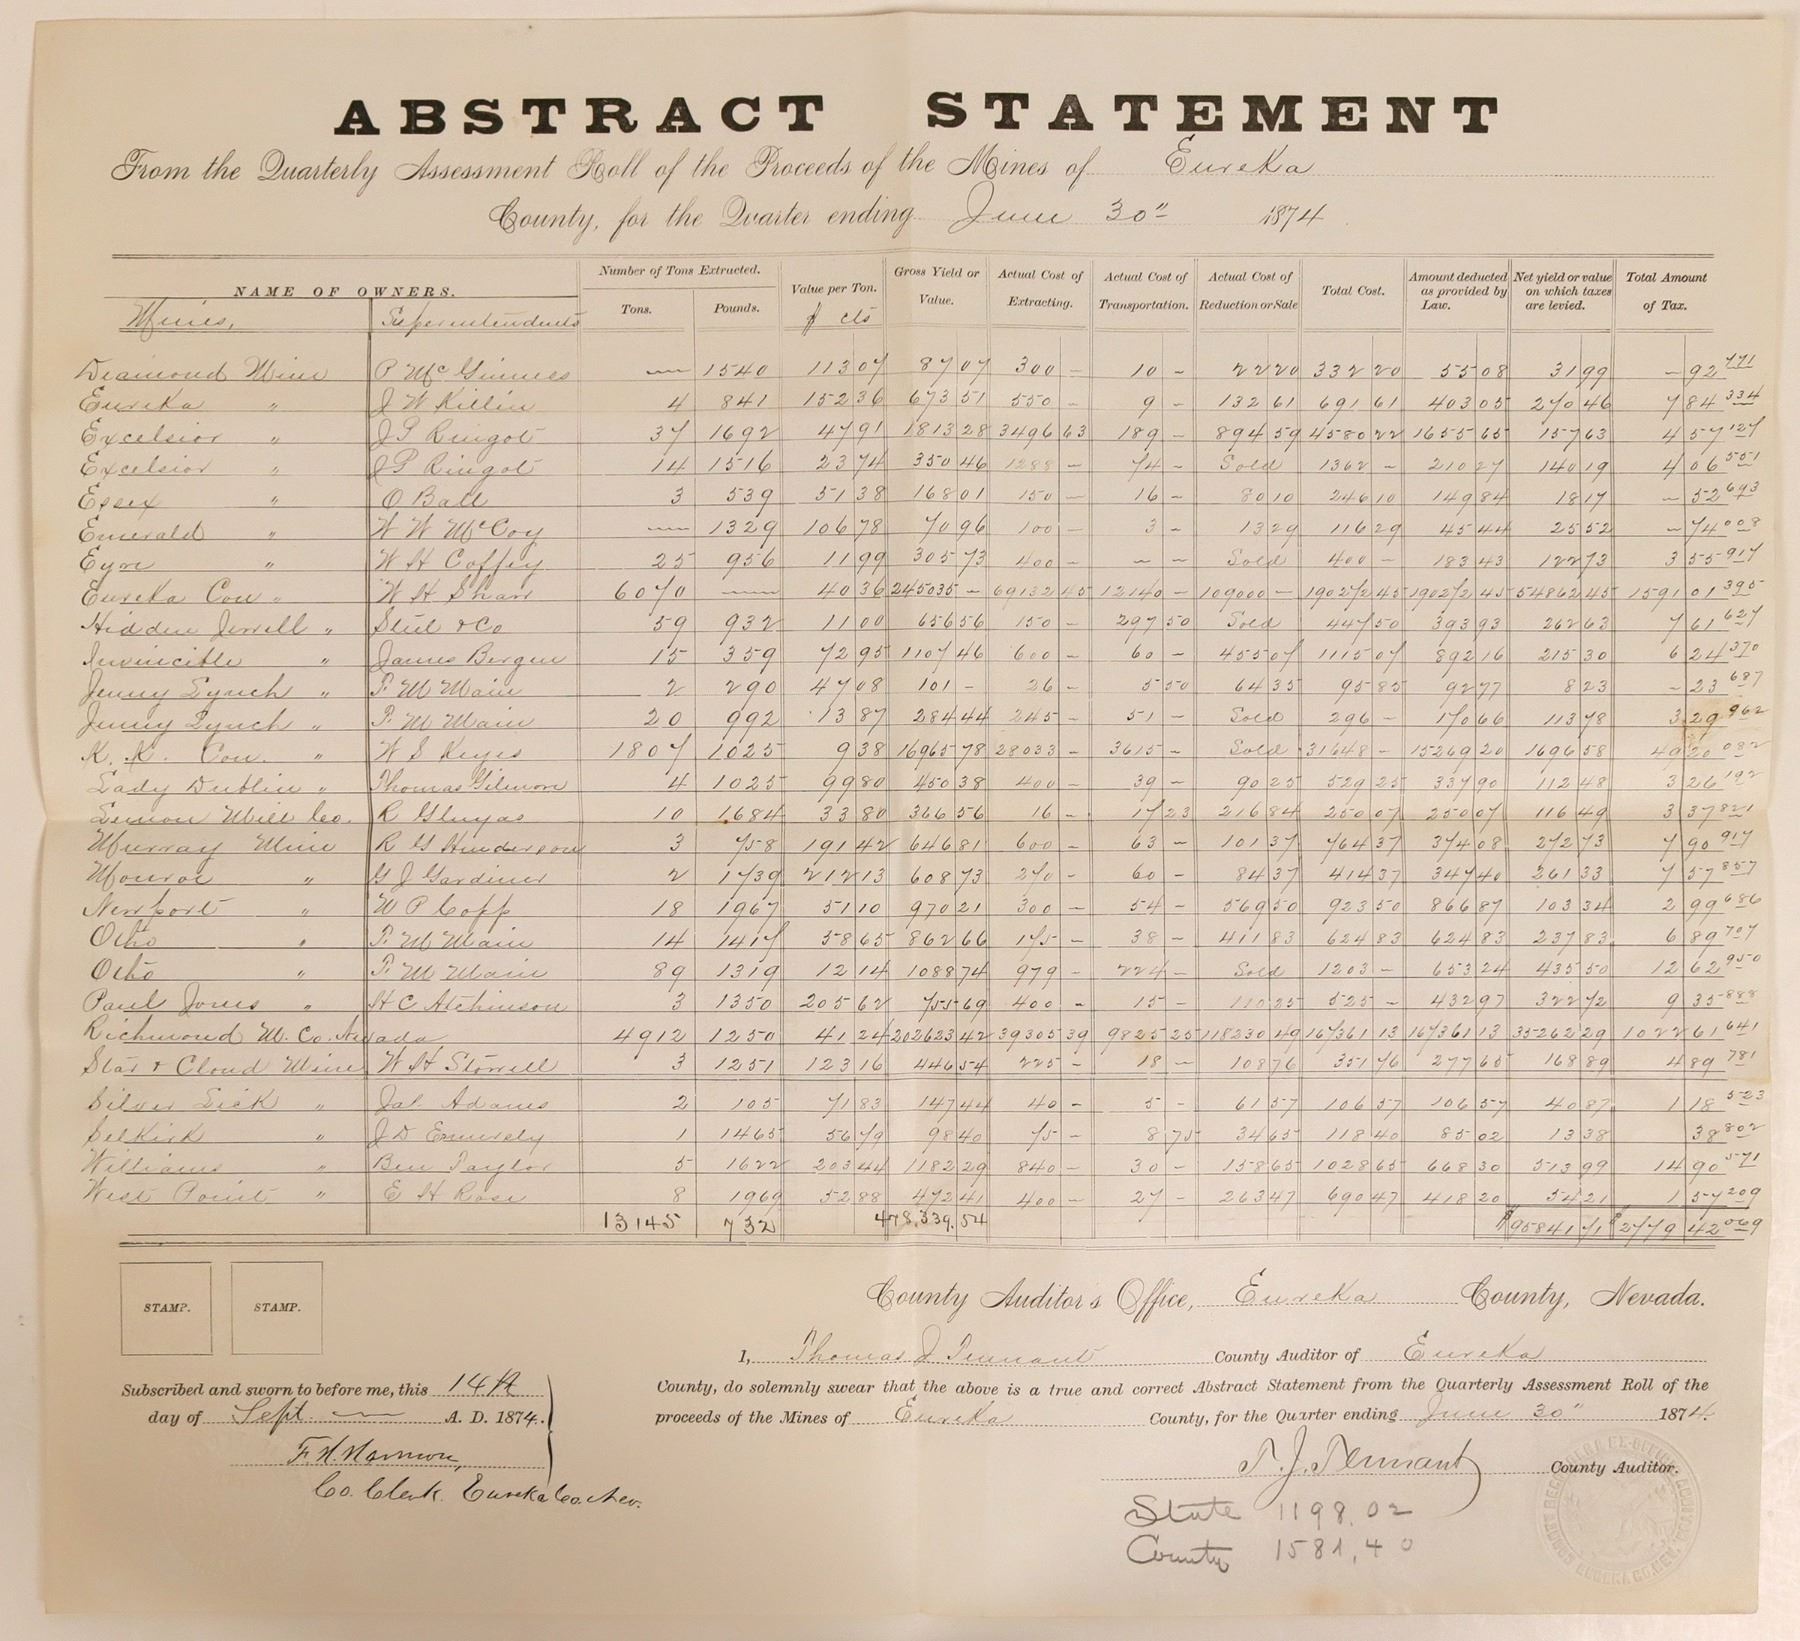 ABSTRACT STATEMENT
From the Quarterly Assessment Roll of the Proceeds of the Mines of Eureka
County, for the Quarter ending June 30" 1874
NAME OF OWNERS. Number of Tons Extracted. Value per Ton. Gross Yield or Value. Actual Cost of Extracting. Actual Cost of Transportation. Actual Cost of Reduction or Sale Total Cost. Amount deducted as provided by Law. Net yield or value on which taxes are levied. Total Amount of Tax.
Mines, Superintendents Tons. Pounds. $ cts
Diamond Mine P McGinnes — 1540 113 07 87 07 300 – 10 – 22 20 332 20 55 08 31 99 – 92 771
Eureka " J W Killin 4 841 152 36 673 51 550 – 9 – 132 61 691 61 403 05 270 46 7 84 334
Excelsior " J P Ringot 37 1692 47 91 1813 28 3496 63 189 – 894 59 4580 22 1655 65 157 63 4 57 127
Excelsior " J P Ringot 14 1516 23 74 350 46 1288 – 74 – Sold 1362 – 210 27 140 19 4 06 551
Essex " O Ball 3 539 51 38 168 01 150 – 16 – 80 10 246 10 149 84 18 17 – 52 693
Emerald " W W McCoy — 1329 106 78 70 96 100 – 3 – 13 29 116 29 45 44 25 52 – 74 008
Eyre " W H Coffey 25 956 11 99 305 73 400 – – – Sold 400 – 183 43 122 73 3 55 917
Eureka Con " W H Shaw 6070 — 40 36 245035 – 69132 45 12140 – 109000 – 190272 45 190272 45 54862 45 1591 01 395
Hidden Jewell " Steel & Co 59 932 11 00 656 56 150 – 297 50 Sold 447 50 393 93 262 63 7 61 627
Invincible " James Bergen 15 359 72 95 1107 46 600 – 60 – 455 07 1115 07 892 16 215 30 6 24 370
Jenny Lynch " T. M Main 2 290 47 08 101 – 26 – 5 50 64 35 95 85 92 77 8 23 – 23 687
Jenny Lynch " T. M Main 20 992 13 87 284 44 245 – 51 – Sold 296 – 170 66 113 78 3 29 962
K. K. Con. " W S Keyes 1807 1025 9 38 16965 78 28033 – 3615 – Sold 31648 – 15269 20 1696 58 49 20 082
Lady Dublin " Thomas Gilmore 4 1025 99 80 450 38 400 – 39 – 90 25 529 25 337 90 112 48 3 26 192
Lemon Mill Co. R Gluyas 10 1684 33 80 366 56 16 – 17 23 216 84 250 07 250 07 116 49 3 37 821
Murray Mine R G Hinderson 3 758 191 42 646 81 600 – 63 – 101 37 764 37 374 08 272 73 7 90 917
Monroe " G J Gardiner 2 1739 212 13 608 73 270 – 60 – 84 37 414 37 347 40 261 33 7 57 857
Newport " W P Copp 18 1967 51 10 970 21 300 – 54 – 569 50 923 50 866 87 103 34 2 99 686
Otho " T. M Main 14 1417 58 65 862 66 175 – 38 – 411 83 624 83 624 83 237 83 6 89 707
Otho " T. M Main 89 1319 12 14 1088 74 979 – 224 – Sold 1203 – 653 24 435 50 12 62 950
Paul Jones " H C Atchinson 3 1350 205 62 755 69 400 – 15 – 110 25 525 – 432 97 322 72 9 35 888
Richmond M. Co. Nevada 4912 1250 41 24 202623 42 39305 39 9825 25 118230 49 167361 13 167361 13 35262 29 1022 61 641
Star & Cloud Mine W H Stowell 3 1251 123 16 446 54 225 – 18 – 108 76 351 76 277 65 168 89 4 89 781
Silver Lick " Jas. Adams 2 105 71 83 147 44 40 – 5 – 61 57 106 57 106 57 40 87 1 18 523
Selkirk " J D Emersely 1 1465 56 79 98 40 75 – 8 75 34 65 118 40 85 02 13 38 38 802
Williams " Ben Taylor 5 1622 203 44 1182 29 840 – 30 – 158 65 1028 65 668 30 513 99 14 90 571
West Point " E H Rose 8 1969 52 88 472 41 400 – 27 – 263 47 690 47 418 20 54 21 1 57 209
13145 732 478,339.54 $95841 71 $2779 42 069
STAMP. STAMP.
County Auditor's Office, Eureka County, Nevada.
I, Thomas J Tennant County Auditor of Eureka
County, do solemnly swear that the above is a true and correct Abstract Statement from the Quarterly Assessment Roll of the
proceeds of the Mines of Eureka County, for the Quarter ending June 30" 1874.
Subscribed and sworn to before me, this 14th
day of Sept. — A. D. 1874.
F. H. Harmon,
Co. Clerk. Eureka Co. Nev.
T. J. Tennant County Auditor.
State 1198.02
County 1581.40